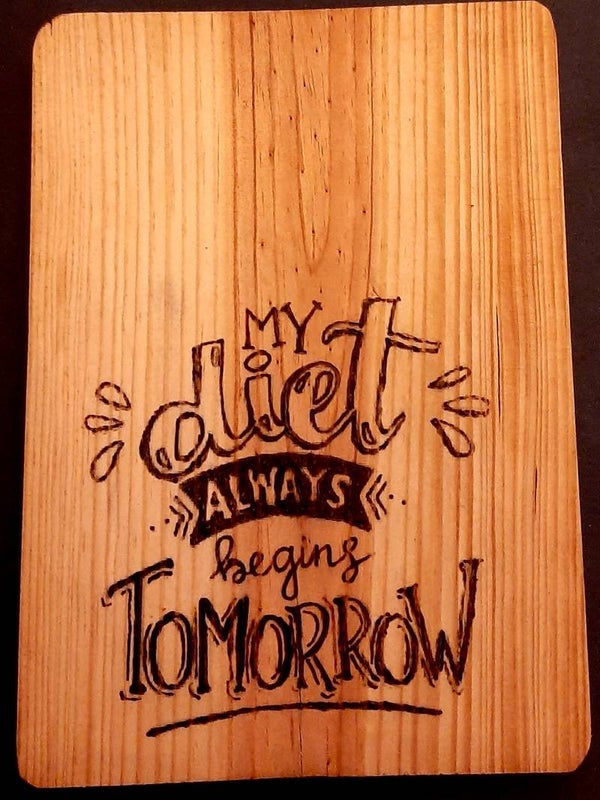 MY
diet
ALWAYS
begins
TOMORROW